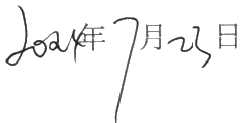 2024年7月23日